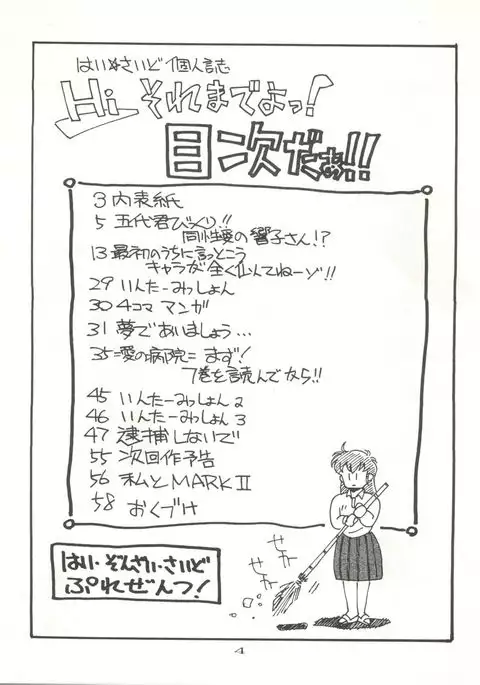 はい☆さいど 個人誌
Hi それまでよっ!
目次だぁ!!
3 内表紙
5 五代君びっくり!!
同性愛の響子さん!?
13 最初のうちに言っとこう
キャラが全く似てねーゾ!!
29 いんたーみっしょん
30 4コママンガ
31 夢であいましょう…
35 =愛の病院= まず!
7巻を読んでから!!
45 いんたーみっしょん2
46 いんたーみっしょん3
47 逮捕しないで
55 次回作予告
56 私とMARKⅡ
58 おくづけ
せか
せか
はい・ぞんざい・さいど
ぷれぜんつ!
4